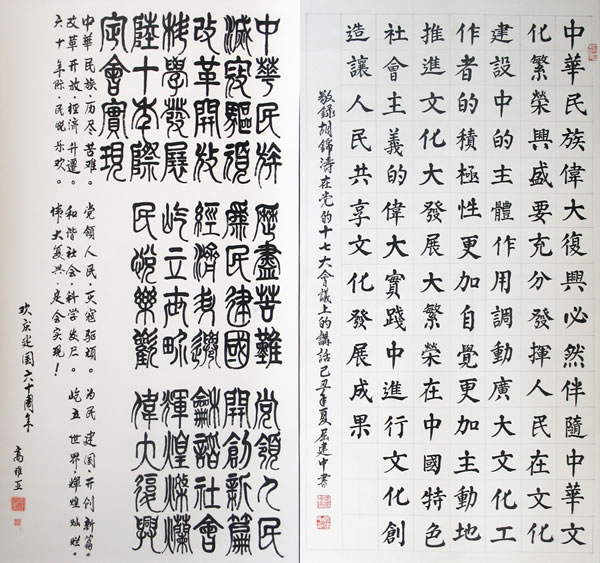 中華民族偉大復興必然伴隨中華文
化繁榮興盛要充分發揮人民在文化
建設中的主體作用調動廣大文化工
作者的積極性更加自覺更加主動地
推進文化大發展大繁榮在中國特色
社會主義的偉大實踐中進行文化創
造讓人民共享文化發展成果
敬錄胡錦濤在党的十七大會議上的講話己丑年夏屈建中書
中華民族歷盡苦難党領人民
滅寇驅頑為民建國開創新篇
改革開放經濟升遷和諧社會
科學發展屹立世界輝煌燦爛
陸十年際民悅樂歡偉大復興
定會實現
中華民族,历尽苦难。党领人民,灭寇驱顽。为民建国,开创新篇。
改革开放,经济升迁。和谐社会,科学发展。屹立世界,輝煌灿烂。
六十年际,民悦乐欢。伟大复兴,定会实现!
欢庆建国六十周年